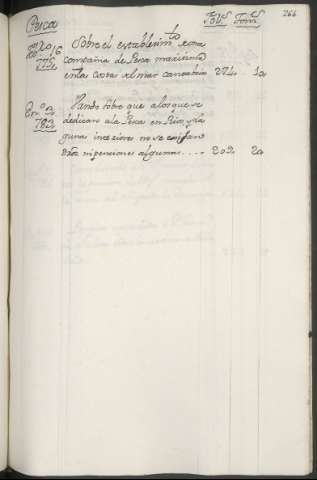 Pesca Fol.s Tom.s 266
16 Sobre el establecim.to de una
775, compañia de Pesca maritima
en las Costas del mar cantabrico 274.. 1o
En.o 2 Vando sobre que a los que se
782 dedicaren a la Pesca en Rios y la
gunas interiores no se exijan
dros ni pensiones algunas.... 202. 20